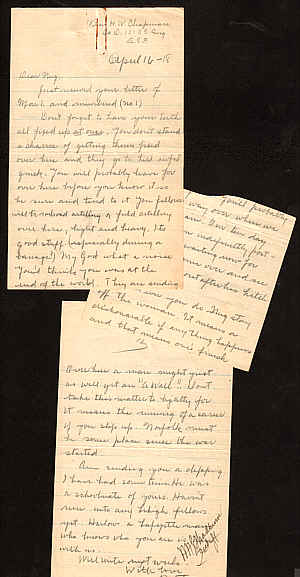 H.W. Chapman
Co. D.
A.E.F.
April 16-18
Dear Ray:
Just received your letter of
March and numbered (No 1)
Dont forget to have your teeth
all fixed up at once. You dont stand
a chance of getting them fixed
over here and they go to hell awful
quick. You will probably leave for
over here before you know it so
be sure and tend to it. You fellows
will field artillery
over here, light and heavy. Its
good stuff (especially during a
barrage) My God what a noise
You'd think you was at the
end of the world. They are sending
You'll probably
over when we
In ten days
indefinitely post-
waiting now for
come over and see
out after his hitch
you do. Ray stay
off the woman. It means a
dishonorable if anything happens
and that means one finish
Over here a man might just
as well get an "A Wall". Dont
take this matter to lightly for
it means the ruining of a career
if you slip up. Norfolk must
be some place since the war
started.
Am sending you a clipping
I have had some time. He was
a schoolmate of yours. Havn't
run into any Lehigh fellows
yet. Harlow a Lafayette man
who knows who you are is
with us.
Will write next week.
With love